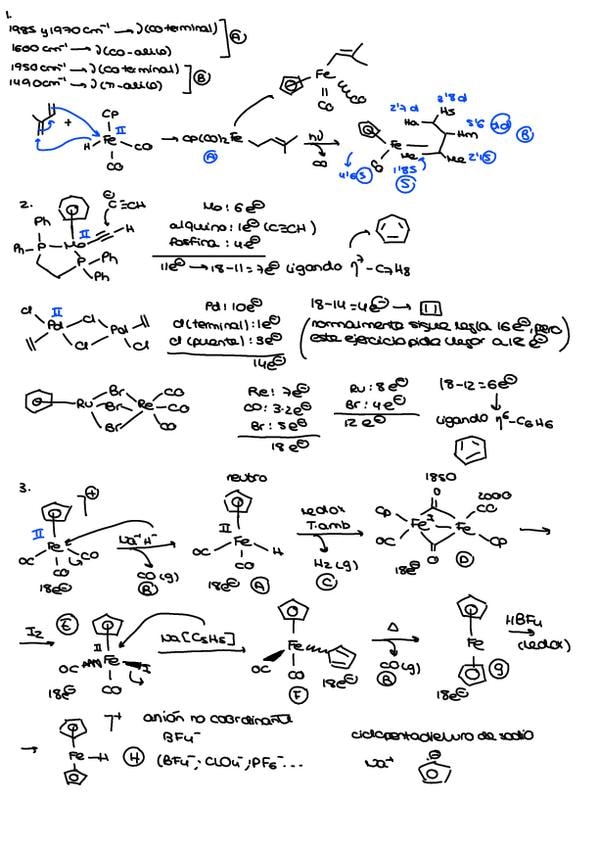 1.
1985 y 1970 cm⁻¹ → ν(CO terminal)
1600 cm⁻¹ → ν(CO-alílo) ] A
1950 cm⁻¹ → ν(CO terminal)
1490 cm⁻¹ → ν(π-alilo) ] B
Fe
CO
CO
2'7 d
Ha
2'8 d
Hs
Hm
3'6 dd
B
+
CP
H
Fe
II
CO
CO
→ CP(CO)₂Fe
A
hν
CO
Fe
CO
Me
Me
2'1 S
4'6 S
1'8 S
S
2.
Ph
Ph
P
Mo
II
P
Ph
Ph
H
⊖
C≡CH
Mo: 6e⊖
alquino: 1e⊖ (C≡CH)
fosfina: 4e⊖
11e⊖ → 18-11=7e⊖ ligando η⁷-C7H8
Cl
II
Pd
Cl
Pd
Cl
Cl
Pd: 10e⊖
Cl(terminal): 1e⊖
Cl(puente): 3e⊖
14e⊖
18-14=4e⊖ →
(normalmente sigue regla 16e⊖, pero
este ejercicio pide llegar a 18e⊖)
Ru
Br
Br
Br
Re
CO
CO
CO
Re: 7e⊖
CO: 3·2e⊖
Br: 5e⊖
18e⊖
Ru: 8e⊖
Br: 4e⊖
12e⊖
18-12=6e⊖
↓
ligando η⁶-C6H6
3.
II
Fe
OC
CO
CO
18e⊖
⊕
Na⁺H⁻
CO(g)
B
neutro
II
Fe
OC
H
CO
18e⊖
A
redox
T.amb
H₂(g)
C
1850
O
CP
OC
Fe
I
Fe
O
2000
CO
CP
18e⊖
D
→
I₂
E
II
OC
Fe
I
CO
18e⊖
Na[C5H5]
Fe
OC
CO
F
18e⊖
Δ
CO(g)
B
Fe
18e⊖
G
HBF4
(redox)
→
Fe-H
⁺
H
anión no coordinante
BF4⁻
(BF4⁻; ClO4⁻; PF6⁻...
ciclopentadieluro de sodio
Na⁺
⊖